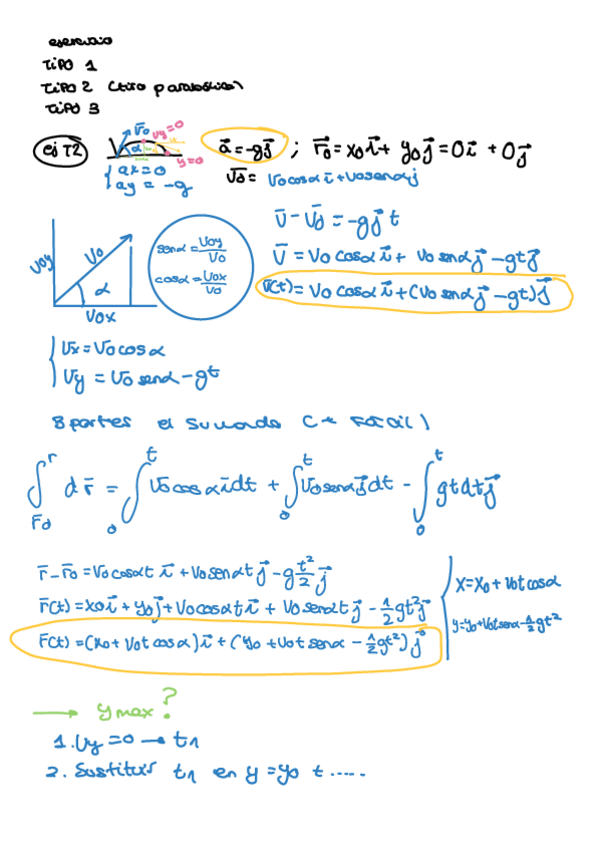 ejercicio
TIPO 1
TIPO 2 (tiro parabólico)
TIPO 3
ej T2 v̄₀ vy=0 α y=0 a⃗=-gj⃗ ; r⃗₀=x₀i⃗+y₀j⃗=0i⃗+0j⃗
{ax=0
ay=-g
v̄₀= v₀cosαi⃗+v₀senαj
v̄-v̄₀=-gj⃗t
v̄=v₀cosαi⃗+v₀senαj⃗-gtj⃗
v̄(t)=v₀cosαi⃗+(v₀senαj⃗-gt)j⃗
v₀y v₀ α v₀x
senα=v₀y/v₀
cosα=v₀x/v₀
{vx=v₀cosα
vy=v₀senα-gt
8partes el sumando (+ fácil)
∫_r̄₀^r dr̄=∫_0^t v₀cosαi⃗dt+∫_0^t v₀senαj⃗dt-∫_0^t gtdtj⃗
r̄-r̄₀=v₀cosαt i⃗+v₀senαt j⃗-g t²/2 j⃗
r̄(t)=x₀i⃗+y₀j⃗+v₀cosαti⃗+v₀senαtj⃗-1/2gt²j⃗
r̄(t)=(x₀+v₀tcosα)i⃗+(y₀+v₀tsenα-1/2gt²)j⃗
{x=x₀+v₀tcosα
y=y₀+v₀tsenα-1/2gt²
→ ymax?
1. vy=0→t₁
2. Sustituir t₁ en y=y₀ t.....